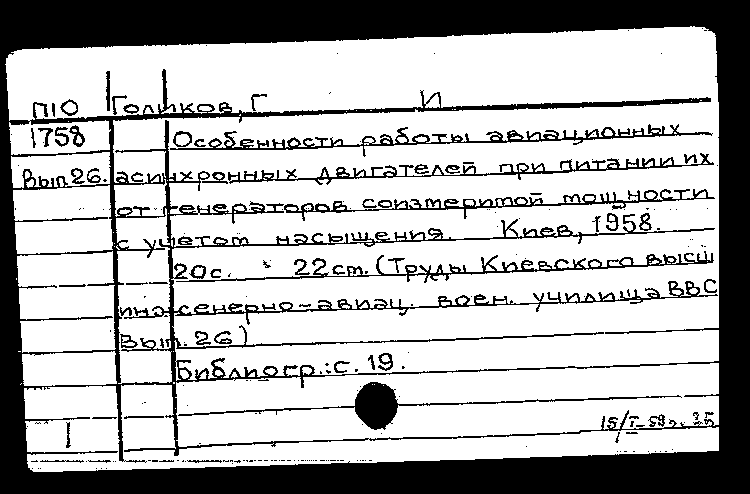 П10 Голиков, Г И
1758 Особенности работы авиационных
Вып.26. асинхронных двигателей при питании их
от генераторов соизмеримой мощности
с учетом насыщения. Киев, 1958.
20с. 22см. (Труды Киевского высш
инженерно-авиац. воен. училища ВВС
Вып. 26)
Библиогр.: с. 19.
1 15/I-59г.